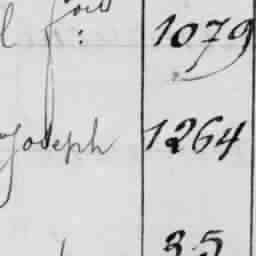 1079
Joseph 1264
35